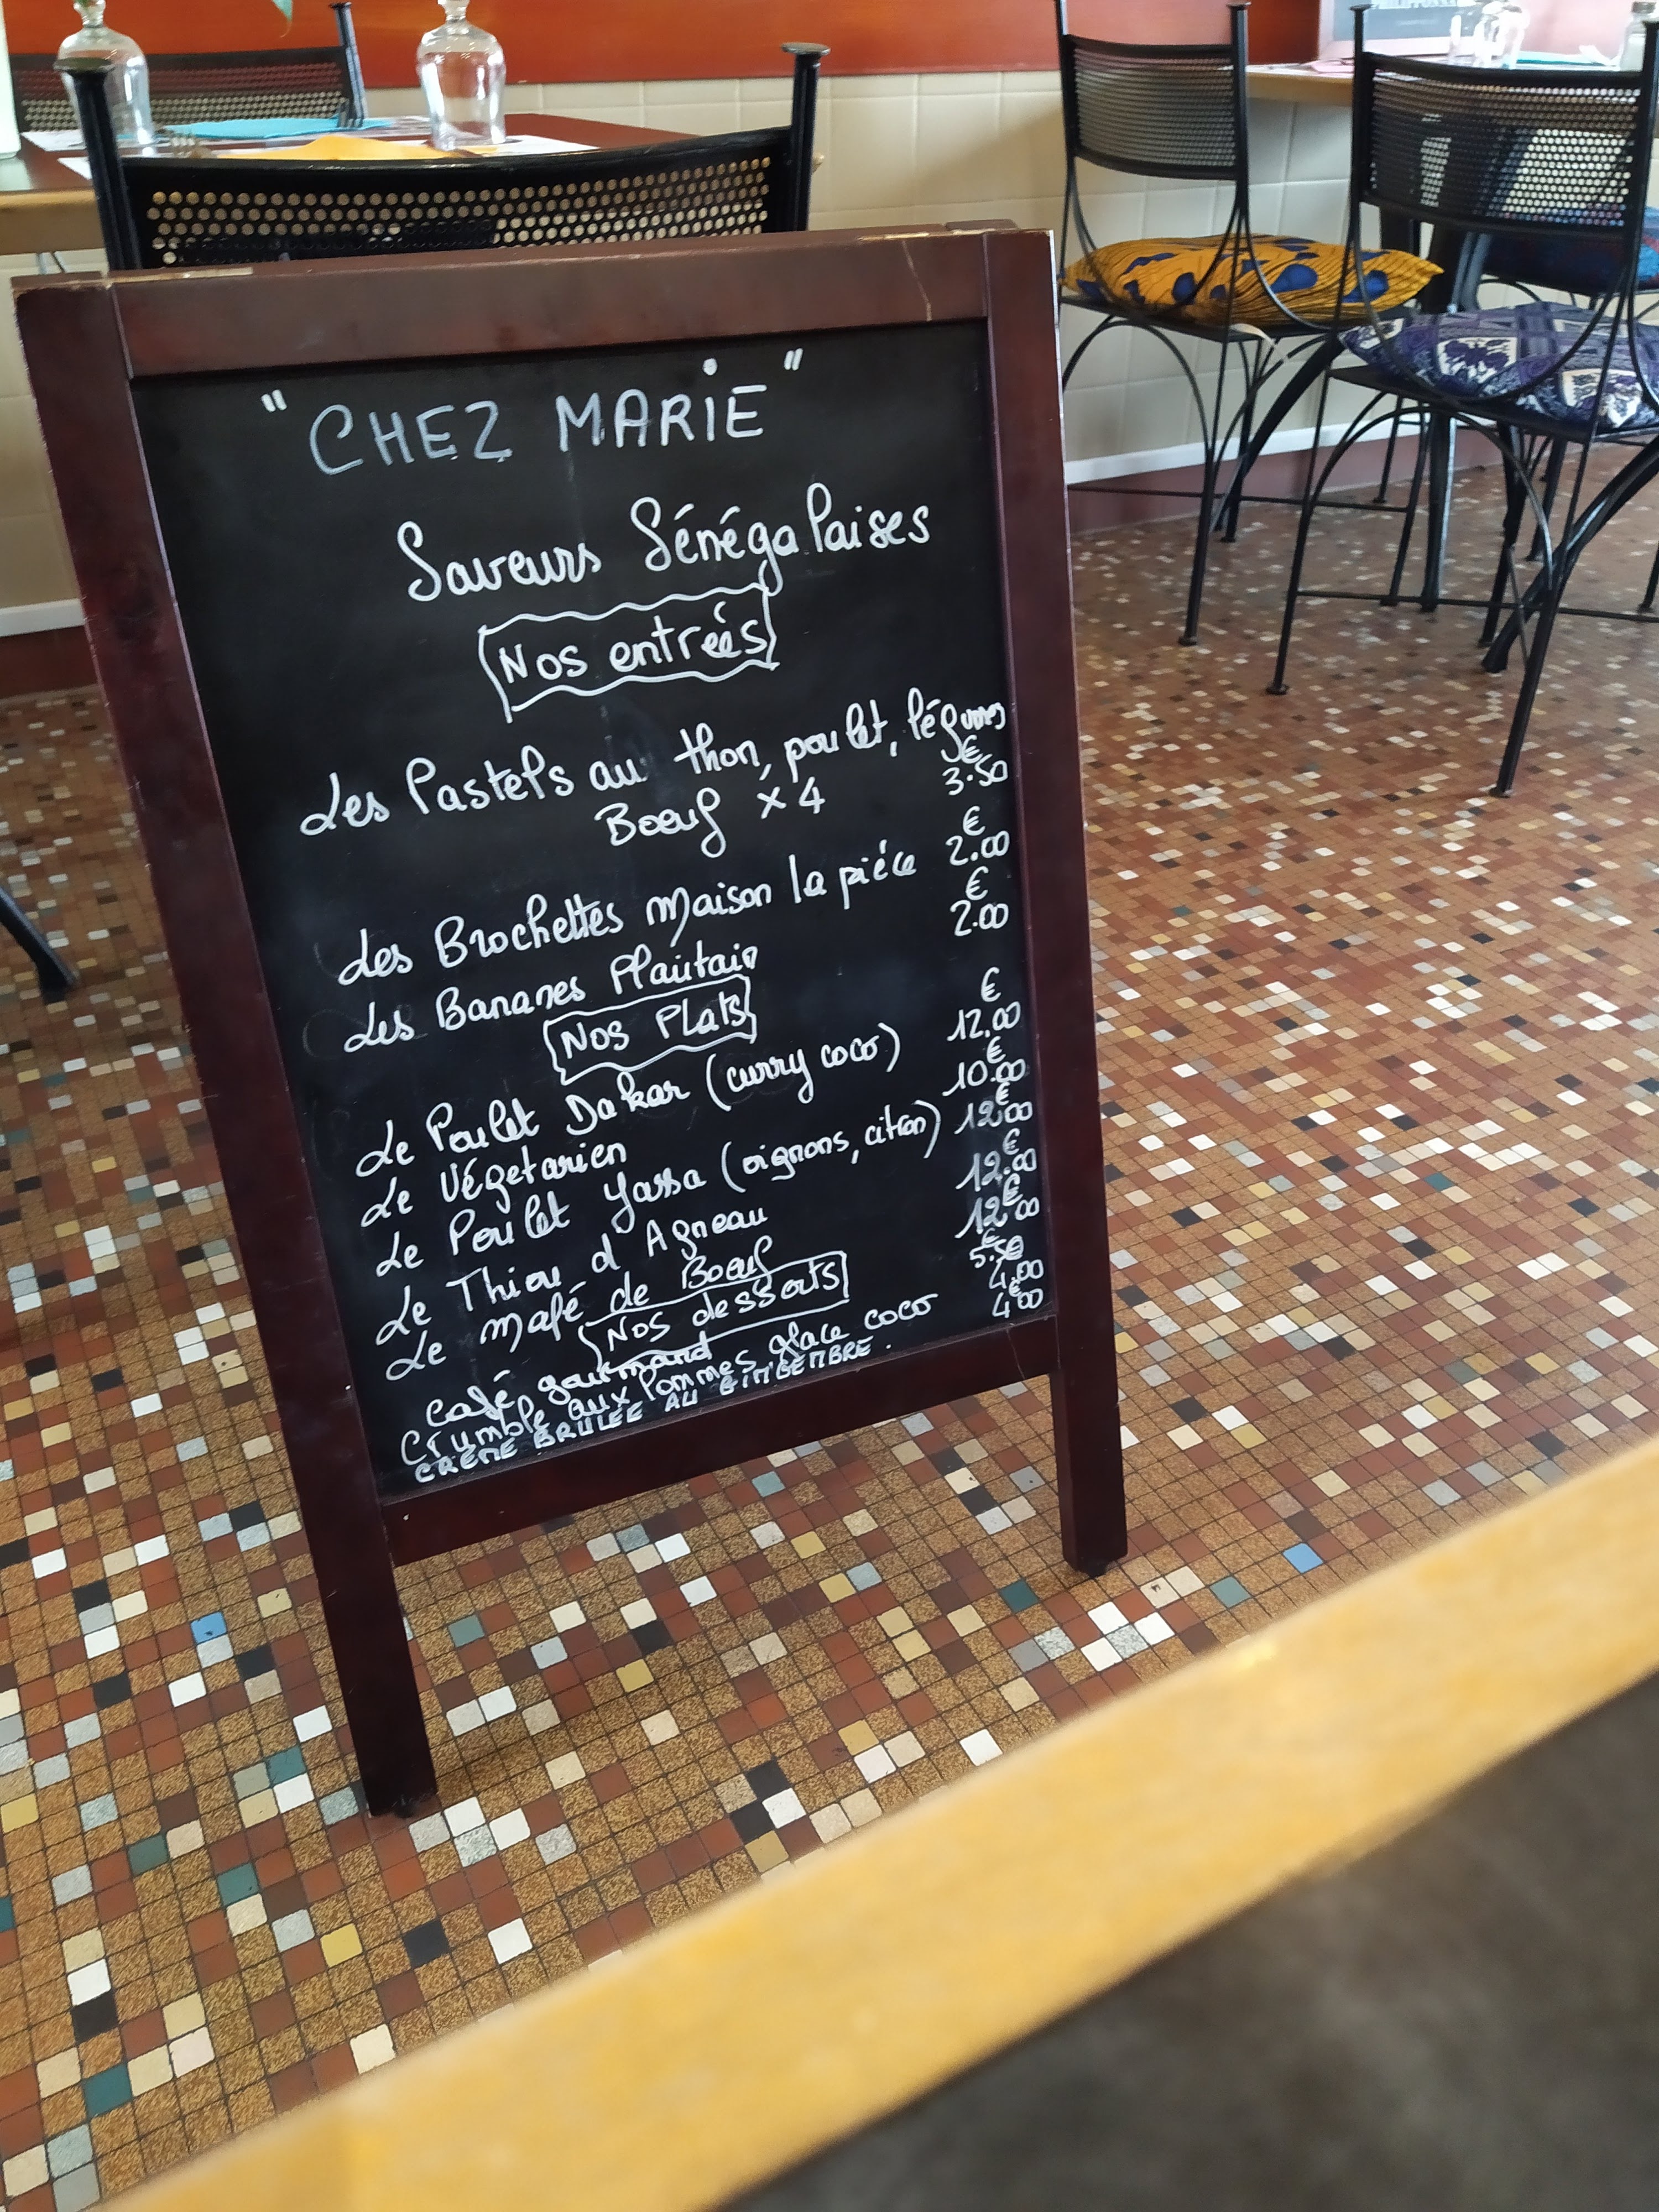 "CHEZ MARIE"
Saveurs Sénégalaises
Nos entrées
Les Pastels au thon, poulet, légumes
Boeuf x 4 € 3.50
Les Brochettes maison la piéce € 2.00
Les Bananes Plantain € 2.00
Nos Plats
Le Poulet Dakar (curry coco) € 12.00
Le Végetarien € 10.00
Le Poulet Yassa (oignons, citron) € 12.00
Le Thiou d'Agneau € 12.00
Le mafé de Boeuf € 12.00
Nos desserts
Café gourmand € 5.50
Crumble aux Pommes glace coco 4.00
CRÈME BRULÉE AU GINGEMBRE. 4€00